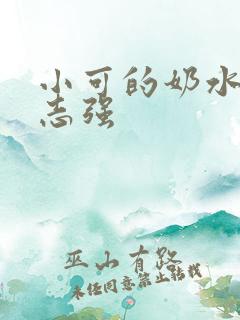 小可的奶水
志强
巫山有路
未经同意禁止转载